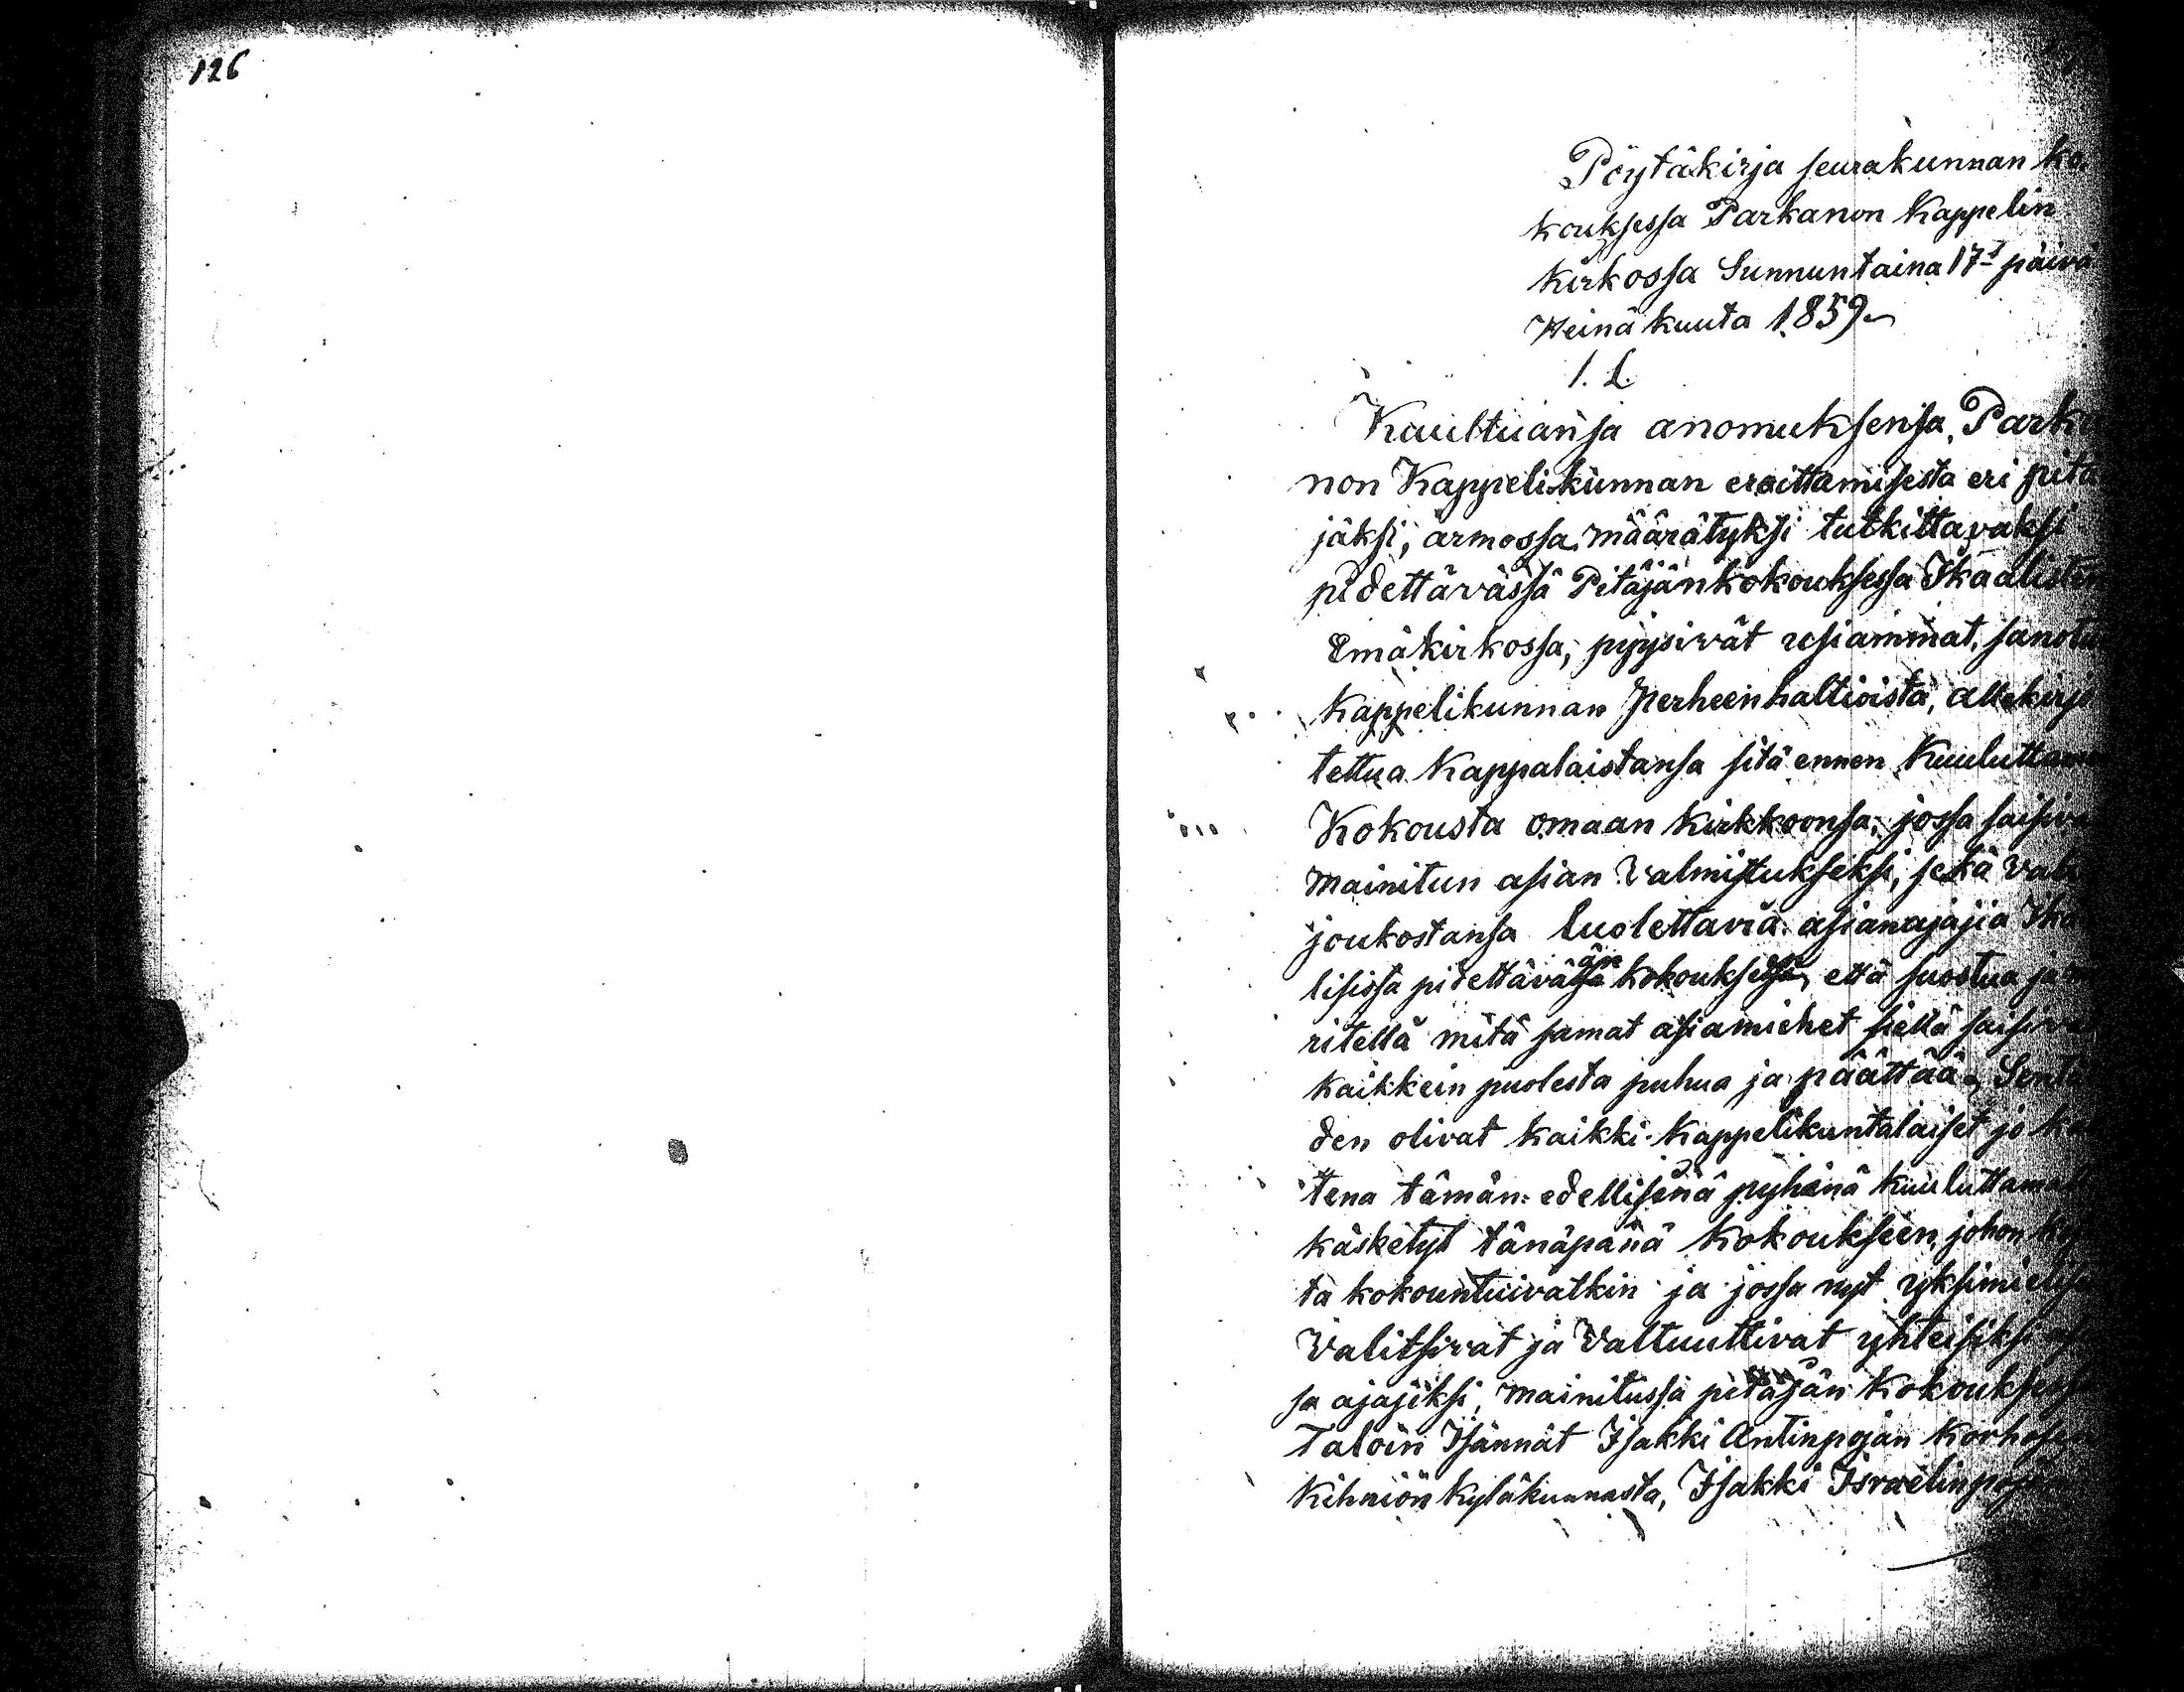 126
Pöytäkirja seurakunnan ko-
kouksessa Parkanon Kappelin
kirkossa Sunnuntaina 17 päivä
Heinäkuuta 1859
1. §.
Kuultuansa anomuksensa, Parka
non Kappelikunnan eroittamisesta eri pitä
jäksi, armossa määrätyksi tutkittavaksi
pidettävässä Pitäjänkokouksessa Ikaalisten
Emäkirkossa, pyysivät usiammat, sanotun
Kappelikunnan Perheenhaltioista, allekirjo
tettua Kappalaistansa sitä ennen Kuuluttamaan
Kokousta omaan kirkkoonsa, jossa saisivat
mainitun asian Valmistukseksi, sekä Valita
joukostansa luolettavia asianajajia Ikaa
lisissa pidettävään kokoukseen, että suostua ja
ritellä mitä samat asiamiehet siellä saisivat
kaikkein puolesta puhua ja päättää. Sentä
den olivat kaikki Kappelikuntalaiset jo
tena tämän edellisenä pyhänä kuuluttamalla
käsketyt tänäpänä Kokoukseen, johon
ta kokountuivatkin ja jossa nyt yksimielisesti
Valitsivat ja Valtuuttivat yhteisiksi
sa ajajiksi, mainitussa pitäjän Kokouksessa
Taloin Isännät Isakki Antinpojan Korhosen
Kihniön Kyläkunnasta, Isakki Israelinpojan